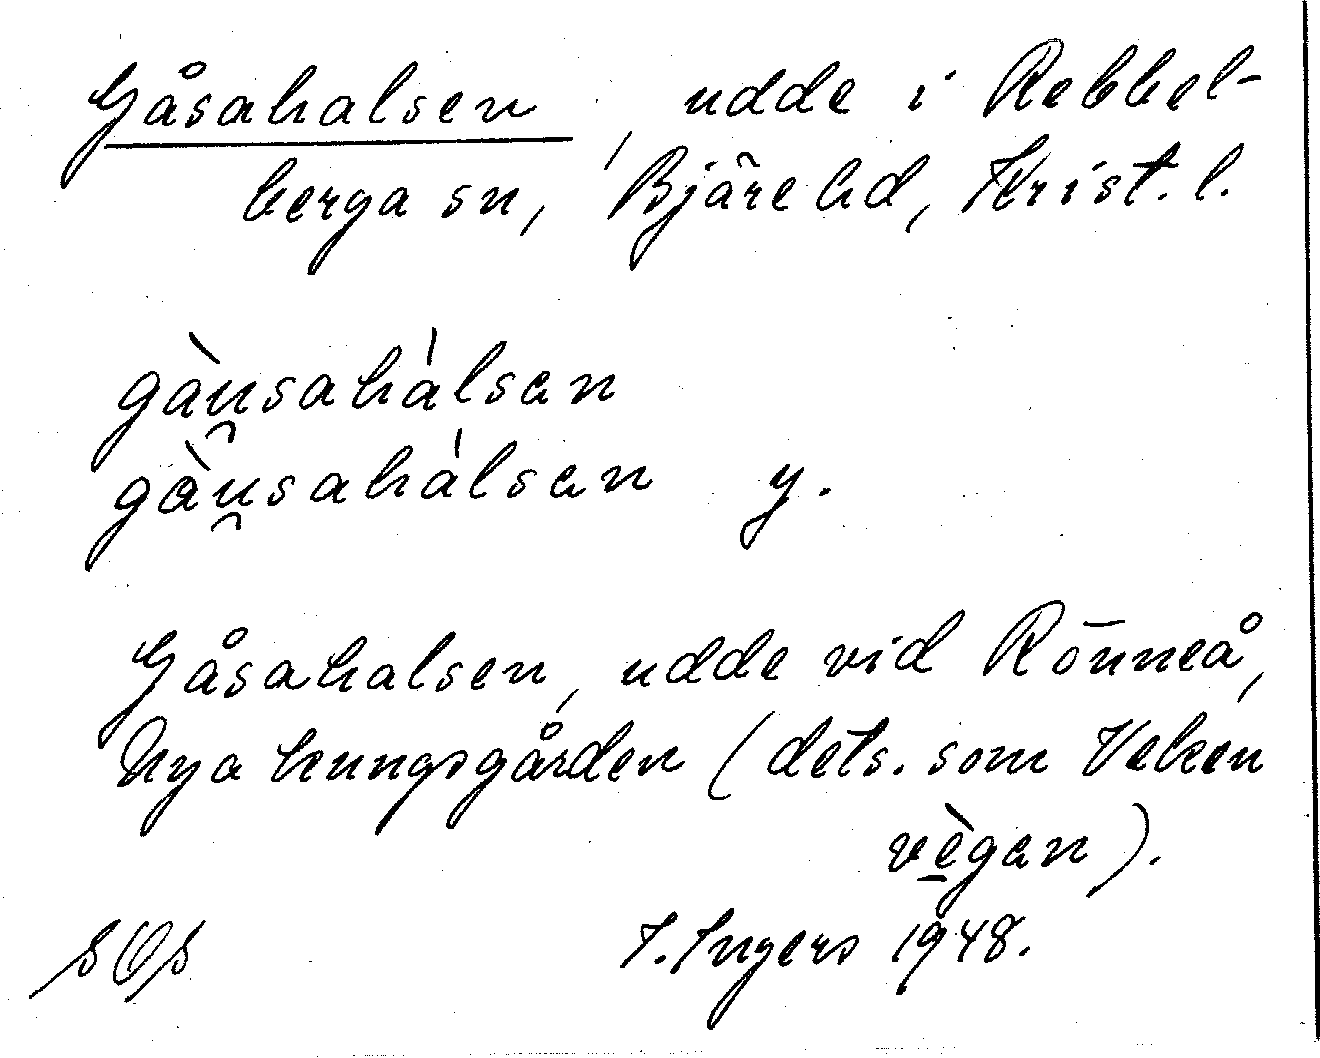 Gåsahalsen, udde i Rebbel-
berga sn, Bjäre hd, Krist. l.
gàu̯sahálsan
gàu̯sahálsan y.
Gåsahalsen, udde vid Rönneå,
Nya kungsgården (dets. som Veken
vè̱gan).
I. Ingers 1948.